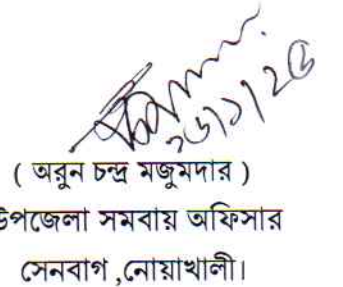 ( অরুন চন্দ্র মজুমদার )
উপজেলা সমবায় অফিসার
সেনবাগ ,নোয়াখালী।